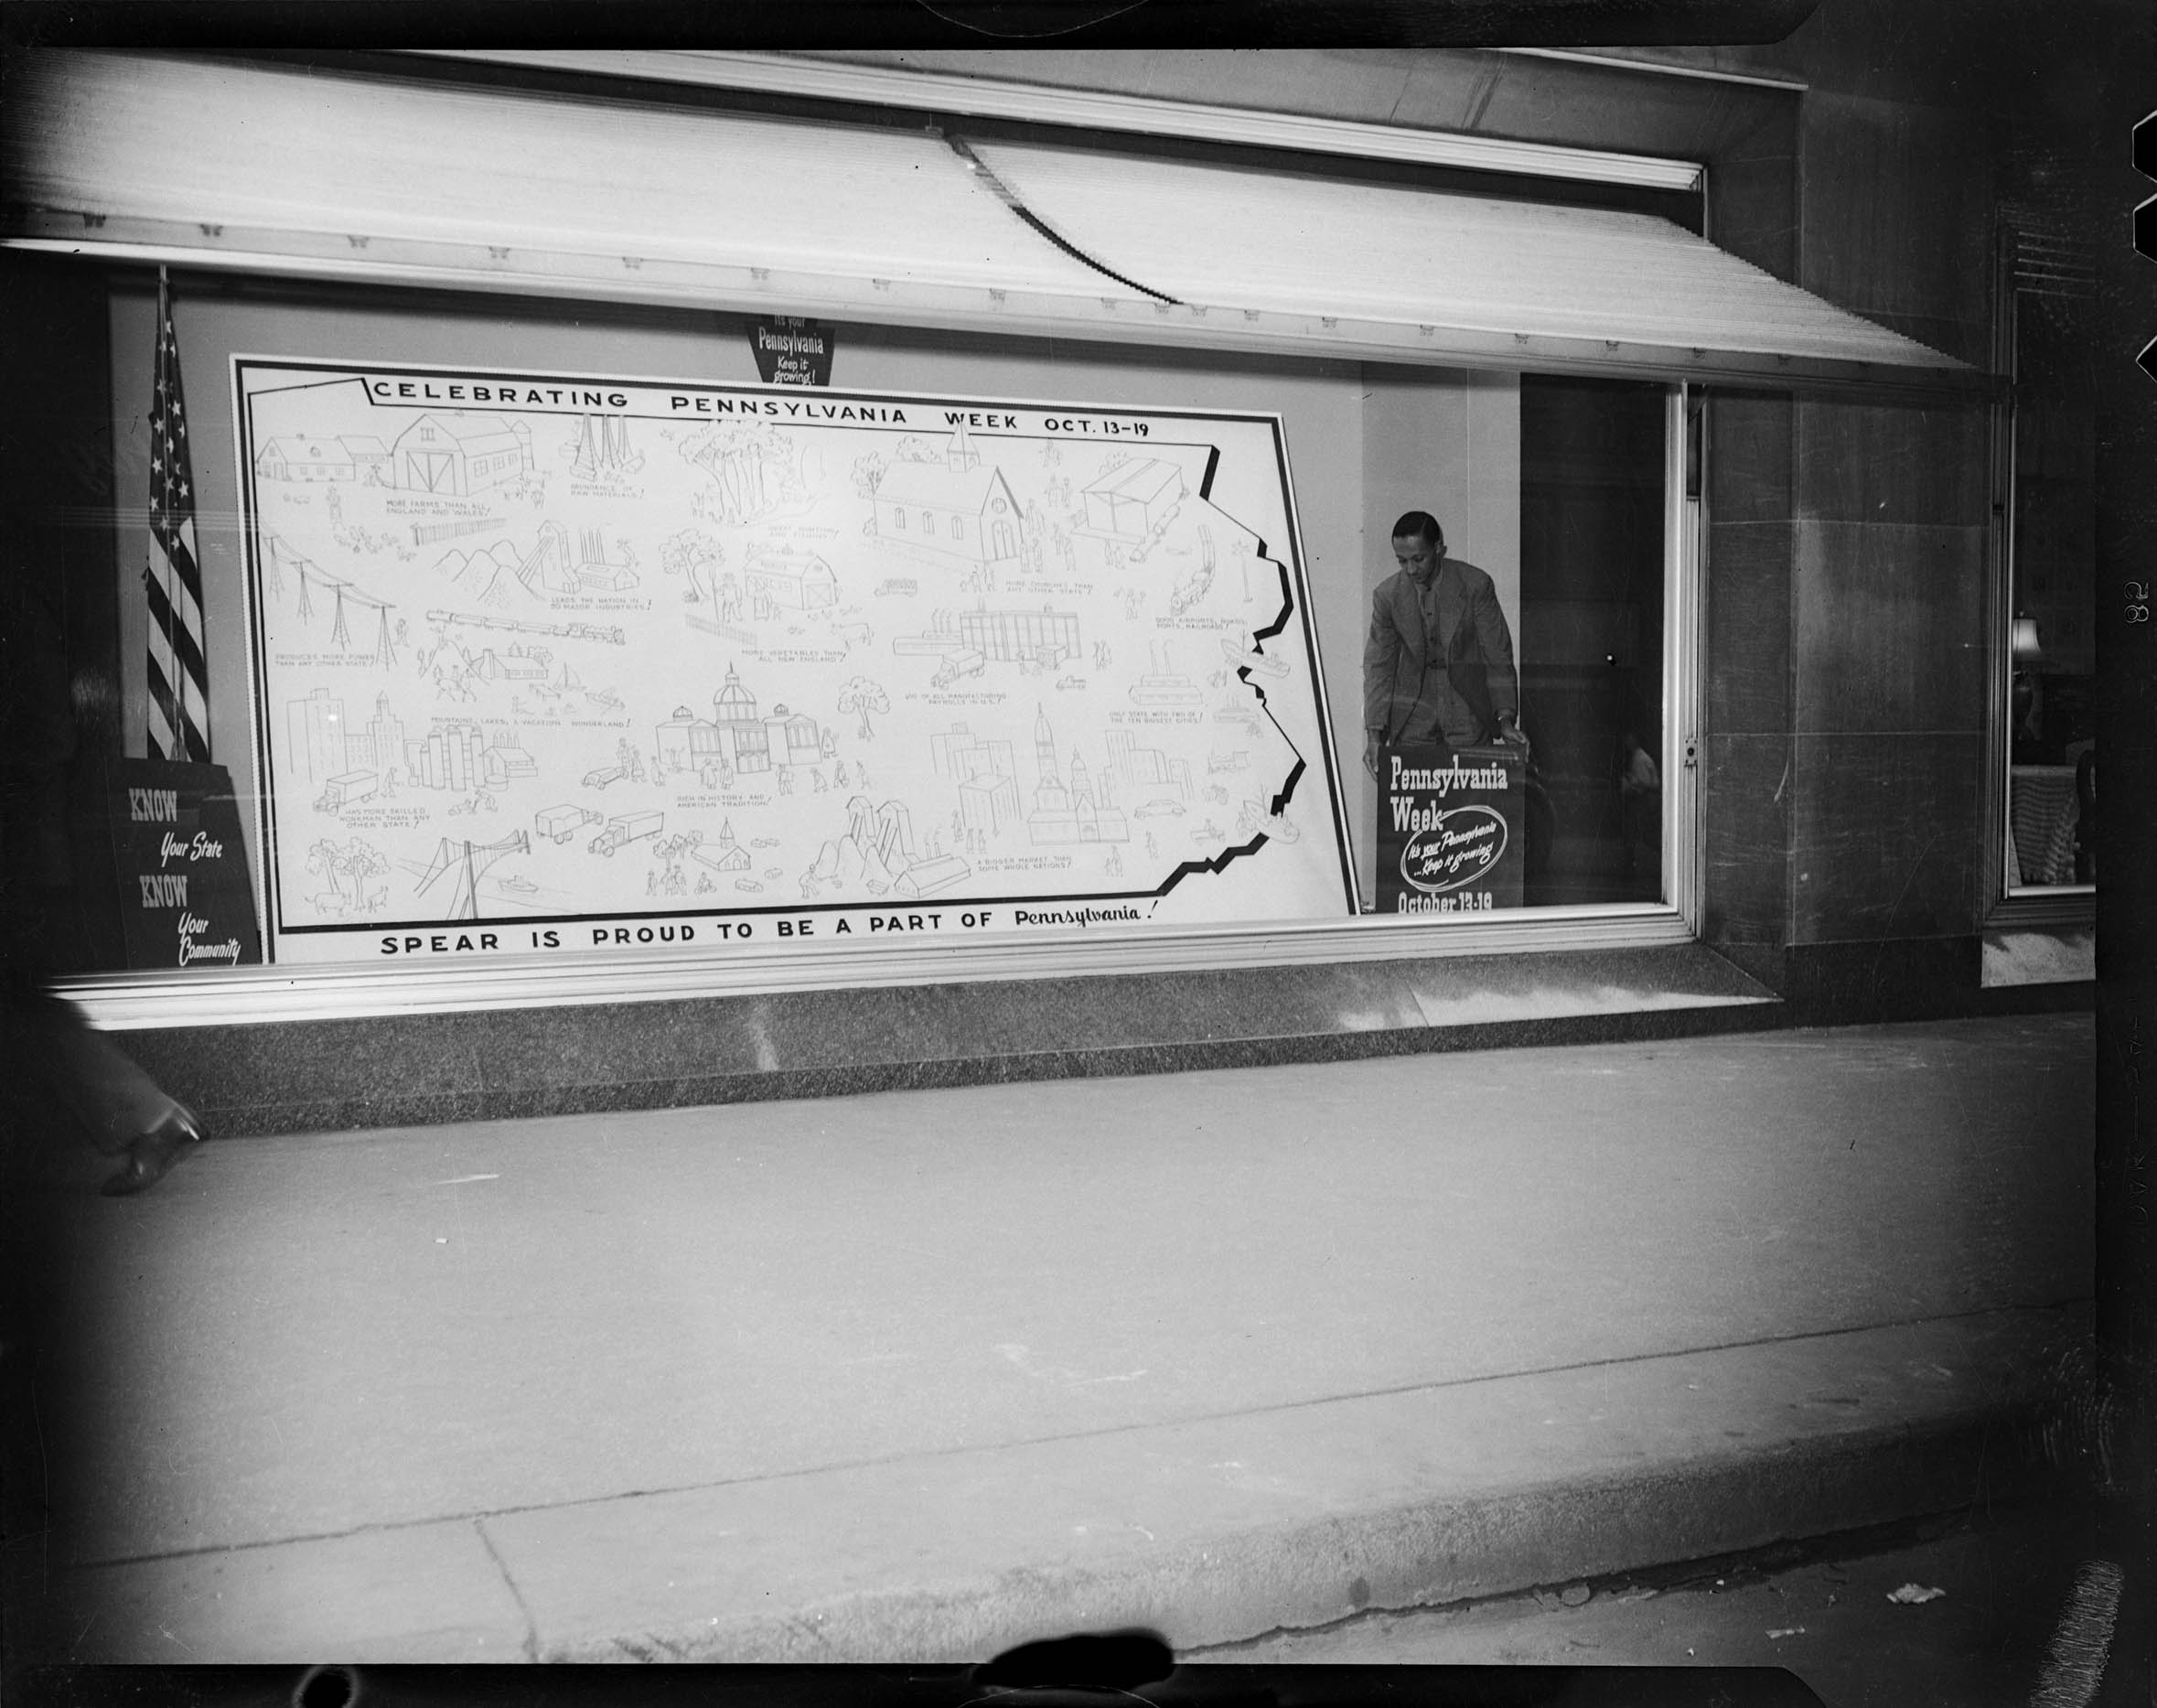 It's your
Pennsylvania
Keep it
growing!
CELEBRATING PENNSYLVANIA WEEK OCT. 13-19
MORE FARMS THAN ALL
ENGLAND AND WALES!
ABUNDANCE OF
RAW MATERIALS!
GREAT HUNTING
AND FISHING!
LEADS THE NATION IN
20 MAJOR INDUSTRIES!
MORE CHURCHES THAN
ANY OTHER STATE!
GOOD AIRPORTS, ROADS,
PORTS, RAILROADS!
PRODUCES MORE POWER
THAN ANY OTHER STATE!
MORE VEGETABLES THAN
ALL NEW ENGLAND!
MOUNTAINS, LAKES, A VACATION WONDERLAND!
OF ALL MANUFACTURING
PAYROLLS IN U.S.!
ONLY STATE WITH TWO OF
THE TEN BIGGEST CITIES!
HAS MORE SKILLED
WORKMAN THAN ANY
OTHER STATE!
RICH IN HISTORY AND
AMERICAN TRADITION!
A BIGGER MARKET THAN
SOME WHOLE NATIONS!
SPEAR IS PROUD TO BE A PART OF Pennsylvania!
KNOW
Your State
KNOW
Your
Community
Pennsylvania
Week
It's your Pennsylvania
...Keep it growing
October 13-19
82